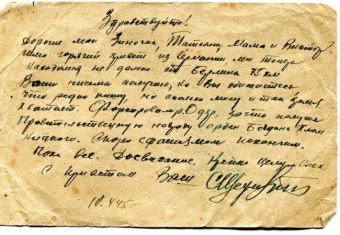 Здравствуйте!
Дорогие мои Зиночка, Татьяна, Мама и Виктор
шлю горячий привет из Германии мы теперь
находимся не далеко от Берлина 75 км
Ваши письма получаю, но Вы обижаетесь
что редко пишу но сколько могу и так время
хватает. Форсировали р. Одер, за что получил
Правительственную награду Орден Богдана Хмель
ницкого. Скоро с фашизмом покончим.
Пока все. Досвидание. Крепко целую Всех
С приветом Ваш
10.4.45